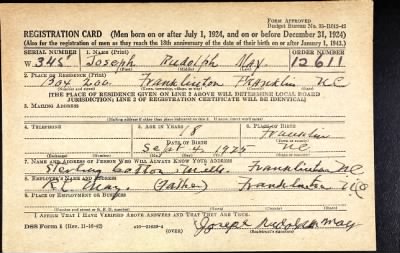 Form Approved
Budget Bureau No. 33-R012-42
REGISTRATION CARD (Men born on or after July 1, 1924, and on or before December 31, 1924)
(Also for the registration of men as they reach the 18th anniversary of the date of their birth on or after January 1, 1943.)
SERIAL NUMBER 1. Name (Print) ORDER NUMBER
W 345 Joseph Rudolph May 12611
(First) (Middle) (Last)
2. Place of Residence (Print)
Box 200 Franklinton Franklin NC
(Number and street) (Town, township, village, or city) (County) (State)
[THE PLACE OF RESIDENCE GIVEN ON LINE 2 ABOVE WILL DETERMINE LOCAL BOARD
JURISDICTION; LINE 2 OF REGISTRATION CERTIFICATE WILL BE IDENTICAL]
3. Mailing Address
[Mailing address if other than place indicated on line 2. If same, insert word same]
4. Telephone 5. Age in Years 6. Place of Birth
18 Franklin
Date of Birth
Sept 4, 1925 NC
(Exchange) (Number) (Mo.) (Day) (Yr.) (State or country)
7. Name and Address of Person Who Will Always Know Your Address
Sterling Cotton Mills Franklinton NC
8. Employer's Name and Address
May (Father) Franklinton NC
9. Place of Employment or Business
(Number and street or R. F. D. number) (Town) (County) (State)
I Affirm That I Have Verified Above Answers and That They Are True.
DSS Form 1 (Rev. 11-16-42) (over) Joseph Rudolph May
(Registrant's signature)